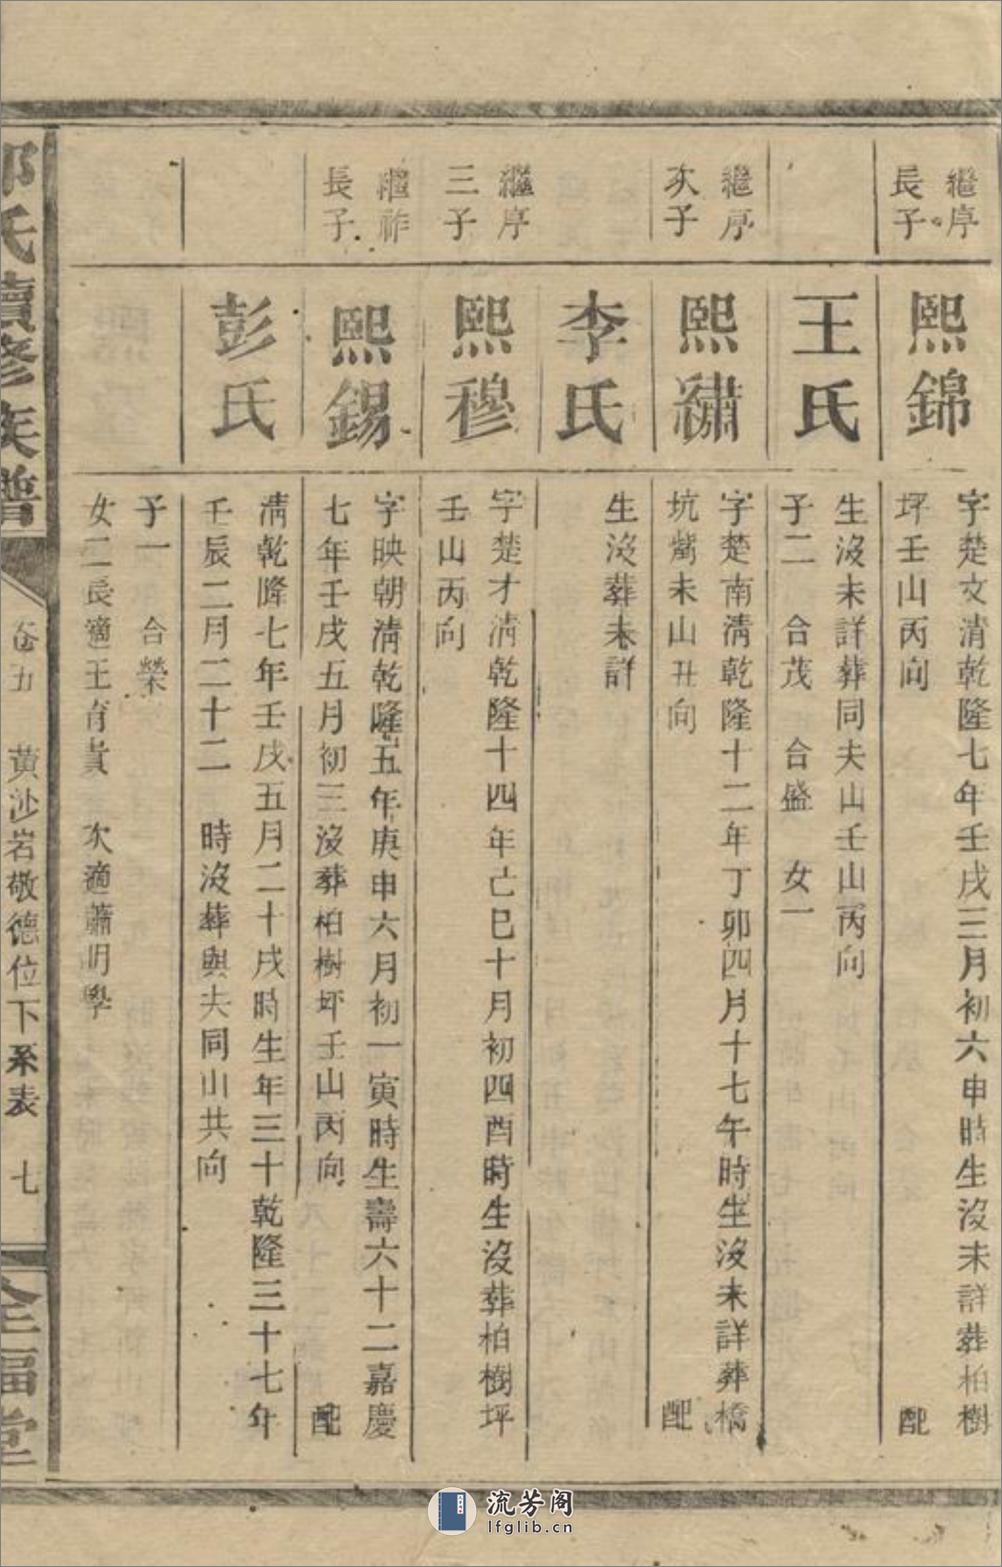 繼序
長子
熙錦
字楚文清乾隆七年壬戌三月初六申時生沒未詳葬柏樹
坪壬山丙向 配
王氏
生沒未詳葬同夫山壬山丙向
子二 合茂 合盛 女一
繼序
次子
熙繡
字楚南清乾隆十二年丁卯四月十七午時生沒未詳葬橋
坑嵛未山丑向 配
李氏
生沒葬未詳
繼序
三子
熙穆
字楚才清乾隆十四年己巳十月初四酉時生沒葬柏樹坪
壬山丙向
繼祚
長子
熙錫
字映朝清乾隆五年庚申六月初一寅時生壽六十二嘉慶
七年壬戌五月初三沒葬柏樹坪壬山丙向 配
彭氏
清乾隆七年壬戌五月二十戌時生年三十乾隆三十七年
壬辰二月二十二 時沒葬與夫同山共向
子一 合榮
女二長適王育貴 次適蕭明學
氏續修族譜
卷五 黃沙岩敬德位下系表 七
福堂
流芳阁
lfglib.cn